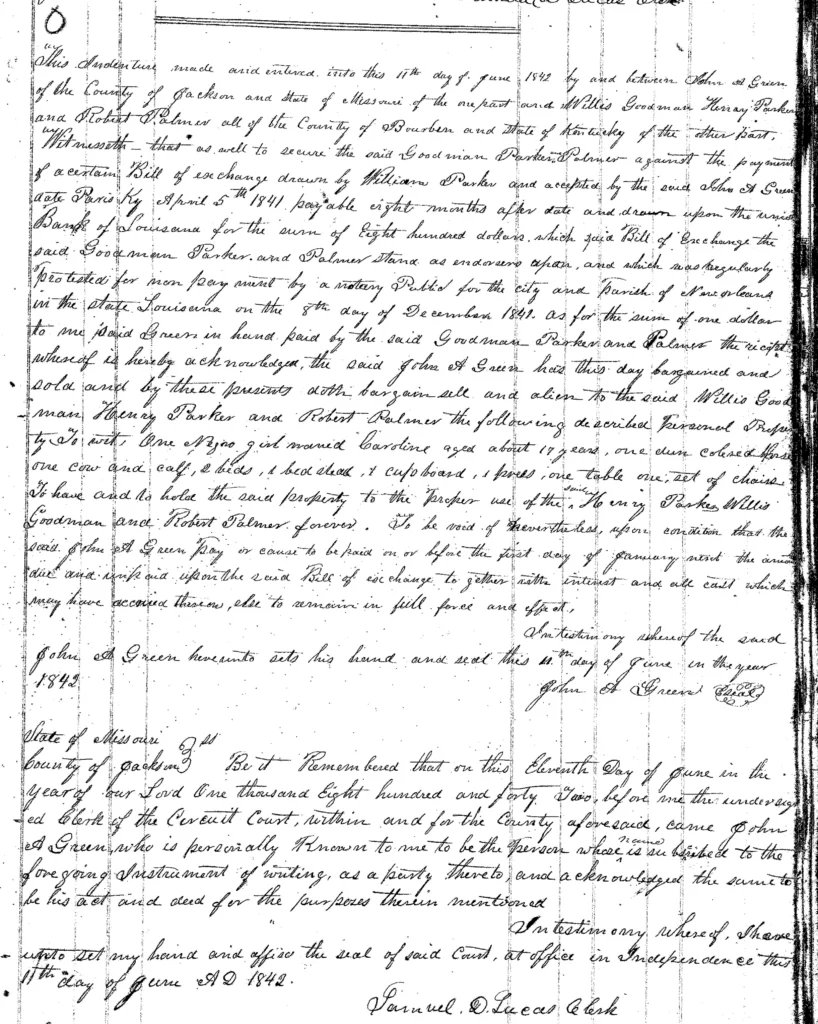 Lucas Clk
This Indenture made and entered into this 11th day of June 1842 by and between John A Green
of the County of Jackson and State of Missouri of the one part and Willis Goodman Henry Parker
and Robert Palmer all of the County of Bourben and state of Kentucky of the other part.
Witnesseth – that as well to secure the said Goodman Parker, Palmer against the payment
of a certain Bill of exchange drawn by William Parker and accepted by the said John A Green
date Paris Ky April 5th 1841 payable eight months after date and drawn upon the union
Bank of Louisana for the sum of Eight hundred dollars, which said Bill of Exchange the
said Goodman Parker and Palmer stand as endorsers upon, and which was regularly
protested for non payment by a notary Public for the city and parish of New orleans
in the state Louisiana on the 8th day of December 1841. as for the sum of one dollar
to me said Green in hand paid by the said Goodman Parker and Palmer the receipt
whereof is hereby acknowledged, the said John A Green has this day bargained and
sold and by these presents doth bargain sell and alien to the said Willis Good
man Henry Parker and Robert Palmer the following described Personal Proper
ty To wit, One Negro girl named Caroline aged about 17 years, one dun colored Horse
one cow and calf, 2 beds, 1 bedstead, 1 cupboard, 1 press, one table one, set of chairs
To have and to hold the said property to the proper use of the said Henry Parker Willis
Goodman and Robert Palmer forever. To be void of nevertheless, upon condition that the
said John A Green Pay or cause to be paid on or before the first day of January next the amo
due and unpaid upon the said Bill of exchange to gether with interest and all cost which
may have accrued thereon, else to remain in full force and effect,
In testimony whereof the said
John A Green hereunto sets his hand and seal this 11th day of June in the year
1842 John A Green Seal
State of Missouri
County of Jackson } st Be it Remembered that on this Eleventh Day of June in the
year of our Lord One thousand Eight hundred and forty Two, before me the undersign
ed Clerk of the Circuit Court, within and for the County aforesaid, came John
A Green, who is personally Known to me to be the person whose name is subscribed to the
foregoing Instrument of writing, as a party thereto, and acknowledged the same to
be his act and deed for the purposes therein mentioned
In testimony whereof, I have
unto set my hand and affix the seal of said Court, at office in Independence this
11th day of June AD 1842.
Samuel. D. Lucas Clerk